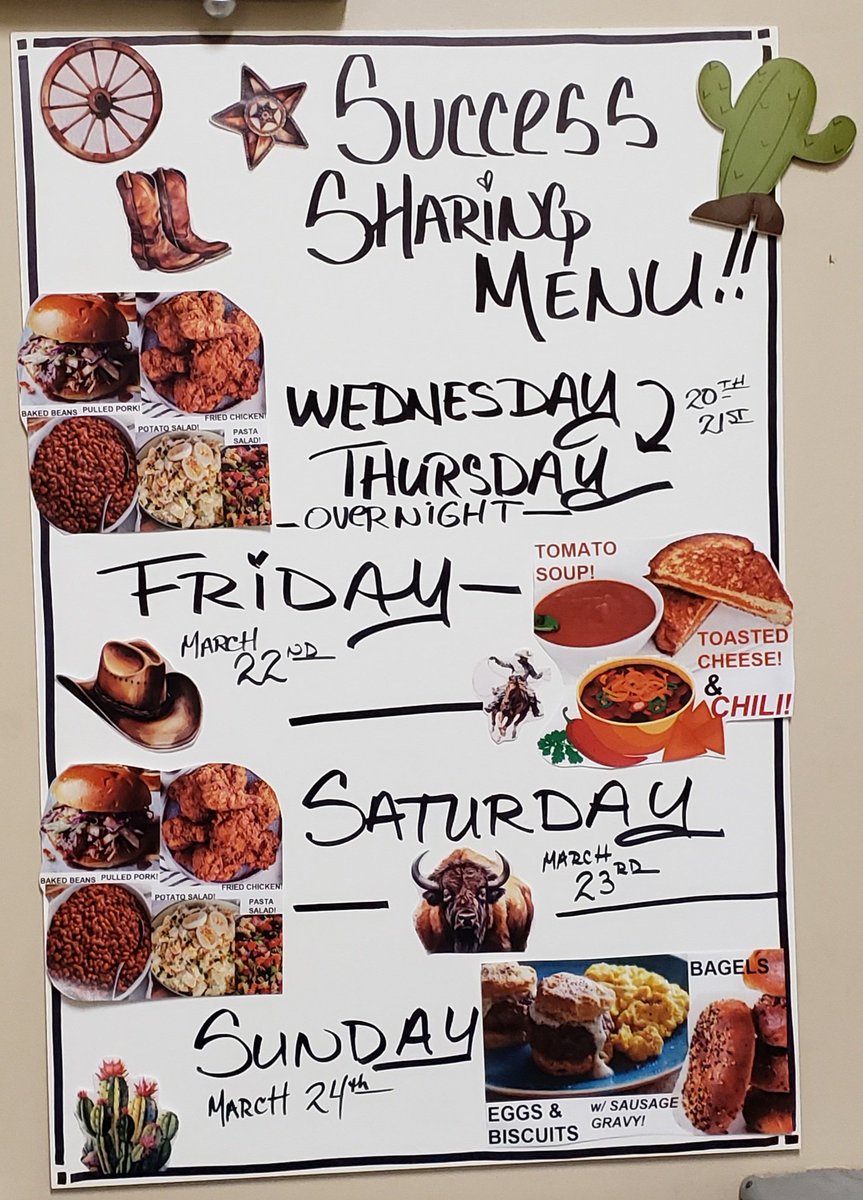 Success
SHARiNG
MENU!!
BAKED BEANS PULLED PORK!
FRIED CHICKEN!
POTATO SALAD!
PASTA
SALAD!
WEDNESDAY
20TH
21ST
THURSDAY
-OVERNIGHT-
FRiDAY-
MARCH
22ND
TOMATO
SOUP!
TOASTED
CHEESE!
&
CHILI!
BAKED BEANS PULLED PORK!
FRIED CHICKEN!
POTATO SALAD!
PASTA
SALAD!
SATURDAY
MARCH
23RD
SUNDAY
MARCH 24th
BAGELS
EGGS &
BISCUITS
W/ SAUSAGE
GRAVY!